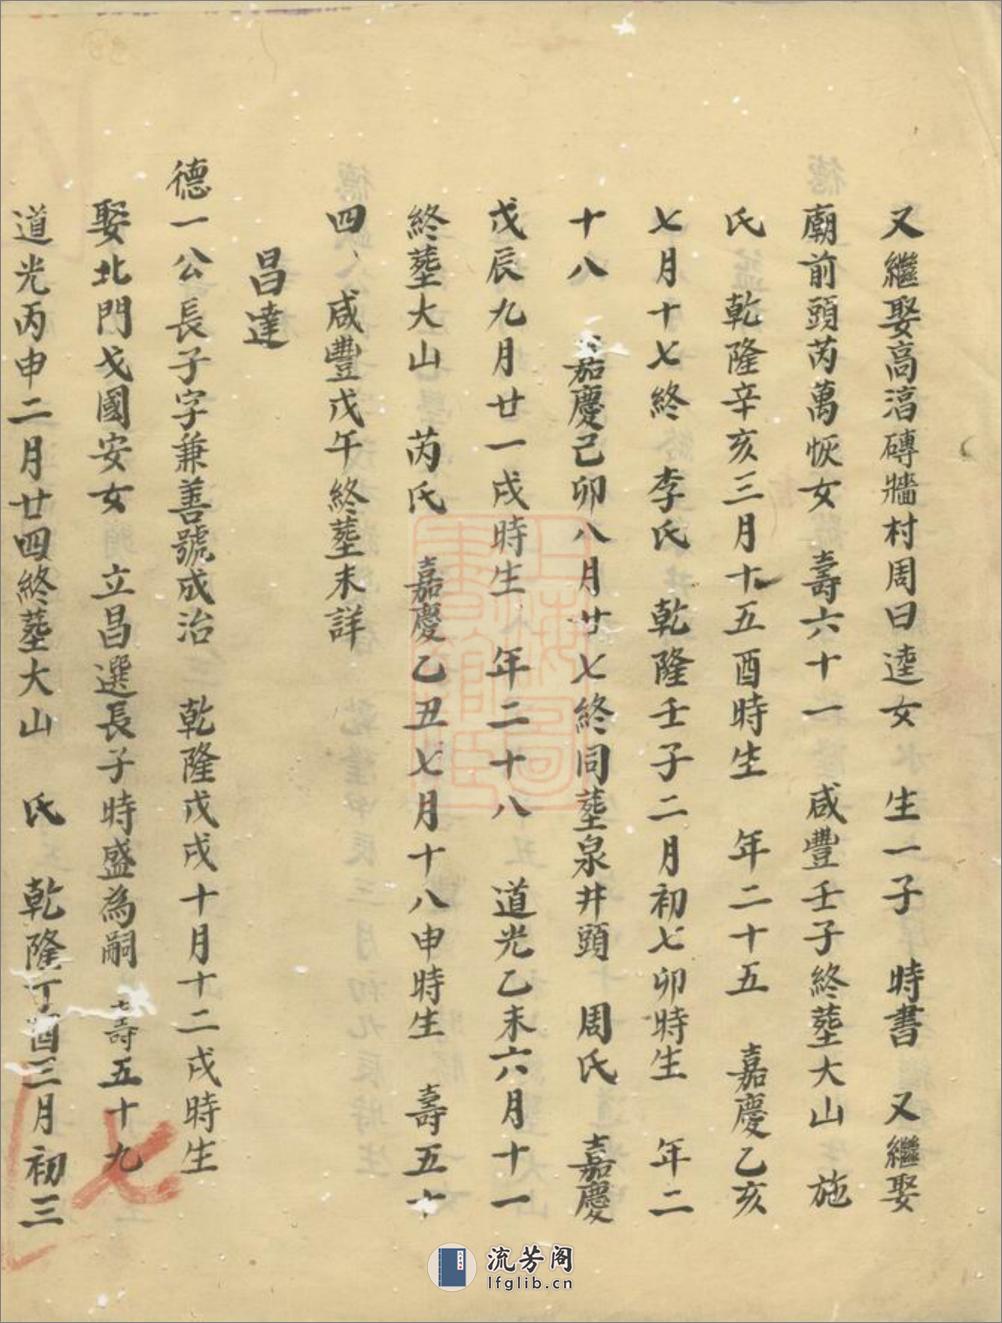 又繼娶高淯磚牆村周曰逵女 生一子 時書 又繼娶
廟前頭芮萬恢女 壽六十一 咸豐壬子終塟大山 施
氏 乾隆辛亥三月十五酉時生 年二十五 嘉慶乙亥
七月十七終 李氏 乾隆壬子二月初七卯時生 年二
十八 嘉慶己卯八月廿七終同塟泉井頭 周氏 嘉慶
戊辰九月廿一戌時生 年二十八 道光乙未六月十一
終塟大山 芮氏 嘉慶乙丑七月十八申時生 壽五十
四 咸豐戊午終塟未詳
昌達
德一公長子字兼善號成治 乾隆戊戌十月十二戌時生
娶北門戈國安女 立昌選長子時盛為嗣 壽五十九
道光丙申二月廿四終塟大山 氏 乾隆丁酉三月初三
七
上海圖書館藏
流芳阁
lfglib.cn